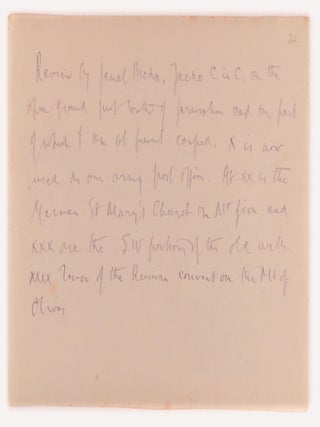 22
Review by General Pasha, Turko C in C, on the
open ground just South of Jerusalem and on part
of which I am at present camped. X is now
used as our army post office. At xx is the
German St Mary's Church on Mt Zion and
xxx are the SW portion of the old walls.
xxxx Tower of the Russian convent on the Mt of
Olives